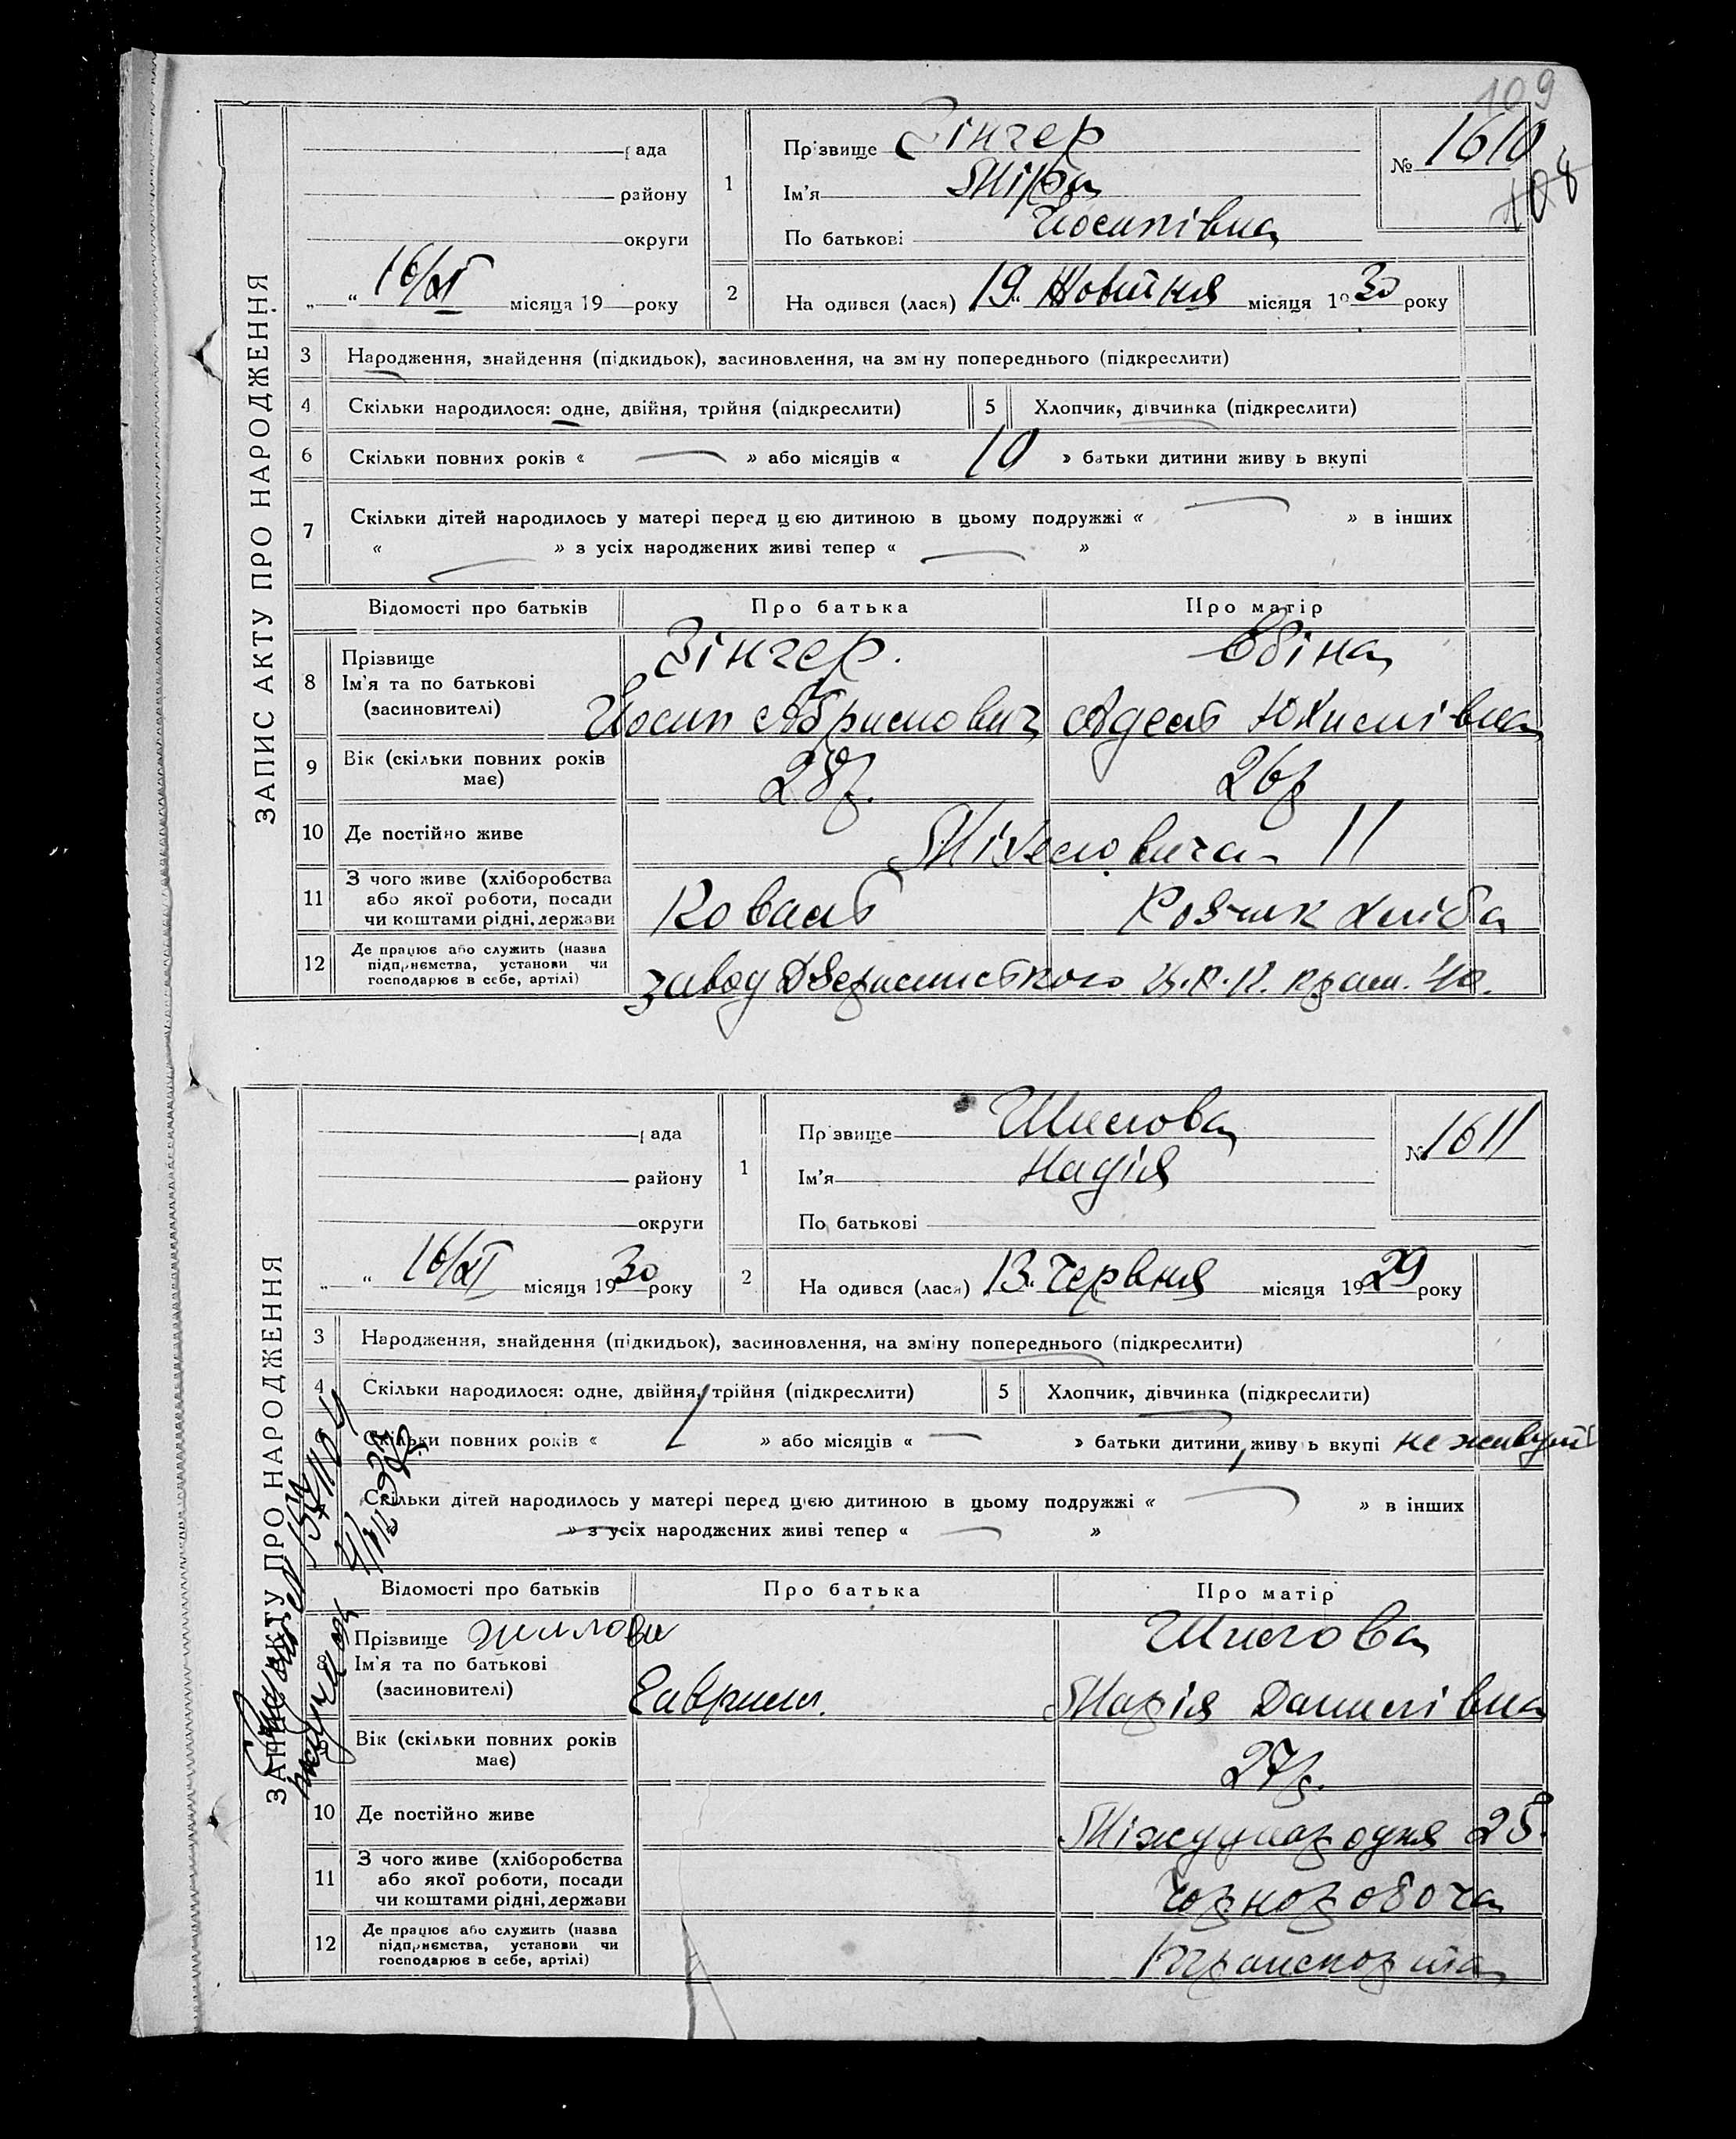 109
ЗАПИС АКТУ ПРО НАРОДЖЕННЯ
рада
району
округи
„ “ 16/XI місяця 19 року
1
Прізвище Зінгер
Ім'я Міра
По батькові Йосипівна
№ 1610
108
2
На одився (лася) 19 „ Жовтня місяця 1930 року
3 Народження, знайдення (підкидьок), засиновлення, на зміну попереднього (підкреслити)
4 Скільки народилося: одне, двійня, трійня (підкреслити)
5 Хлопчик, дівчинка (підкреслити)
6 Скільки повних років « — » або місяців « 10 » батьки дитини живуть вкупі
7 Скільки дітей народилось у матері перед цією дитиною в цьому подружжі « — » в інших
« — » з усіх народжених живі тепер « — »
Відомості про батьків Про батька Про матір
8 Прізвище Ім'я та по батькові (засиновителі)
Зінгер.
Йосип Абрамович
Адель Юхимівна
9 Вік (скільки повних років має) 28р. 26р
10 Де постійно живе 11
11 З чого живе (хліборобства або якої роботи, посади чи коштами рідні, держави
Коваль
хліба
12 Де працює або служить (назва підприємства, установи чи господарює в себе, артілі)
завод Ц.Р.К. крам. 40.
ЗАПИС АКТУ ПРО НАРОДЖЕННЯ
рада
району
округи
„ “ 16/XI місяця 1930 року
1
Прізвище Шилова
Ім'я Надія
По батькові
№ 1611
2
На одився (лася) 13 „ Червня місяця 1929 року
3 Народження, знайдення (підкидьок), засиновлення, на зміну попереднього (підкреслити)
4 Скільки народилося: одне, двійня, трійня (підкреслити)
5 Хлопчик, дівчинка (підкреслити)
Скільки повних років « 1 » або місяців « — » батьки дитини живуть вкупі не живуть
Скільки дітей народилось у матері перед цією дитиною в цьому подружжі « — » в інших
» з усіх народжених живі тепер « — »
Відомості про батьків Про батька Про матір
8 Прізвище Ім'я та по батькові (засиновителі)
Шилова
Марія Данилівна
9 Вік (скільки повних років має) 27р.
10 Де постійно живе Міжународня 28.
11 З чого живе (хліборобства або якої роботи, посади чи коштами рідні, держави
Чорноробоча
12 Де працює або служить (назва підприємства, установи чи господарює в себе, артілі)